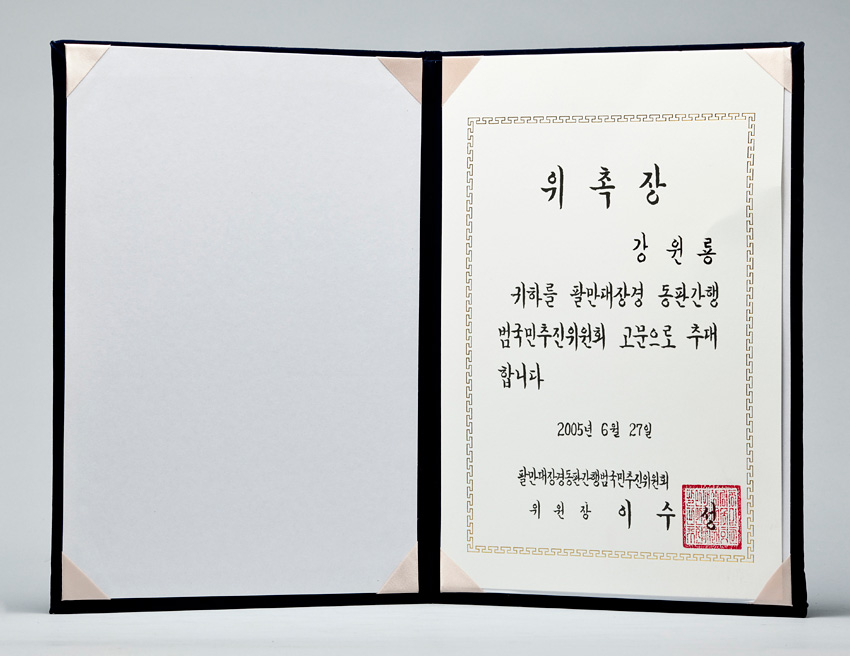 위 촉 장
강 원 룡
귀하를 팔만대장경 동판간행
범국민추진위원회 고문으로 추대
합니다
2005년 6월 27일
팔만대장경동판간행범국민추진위원회
위 원 장 이 수 성